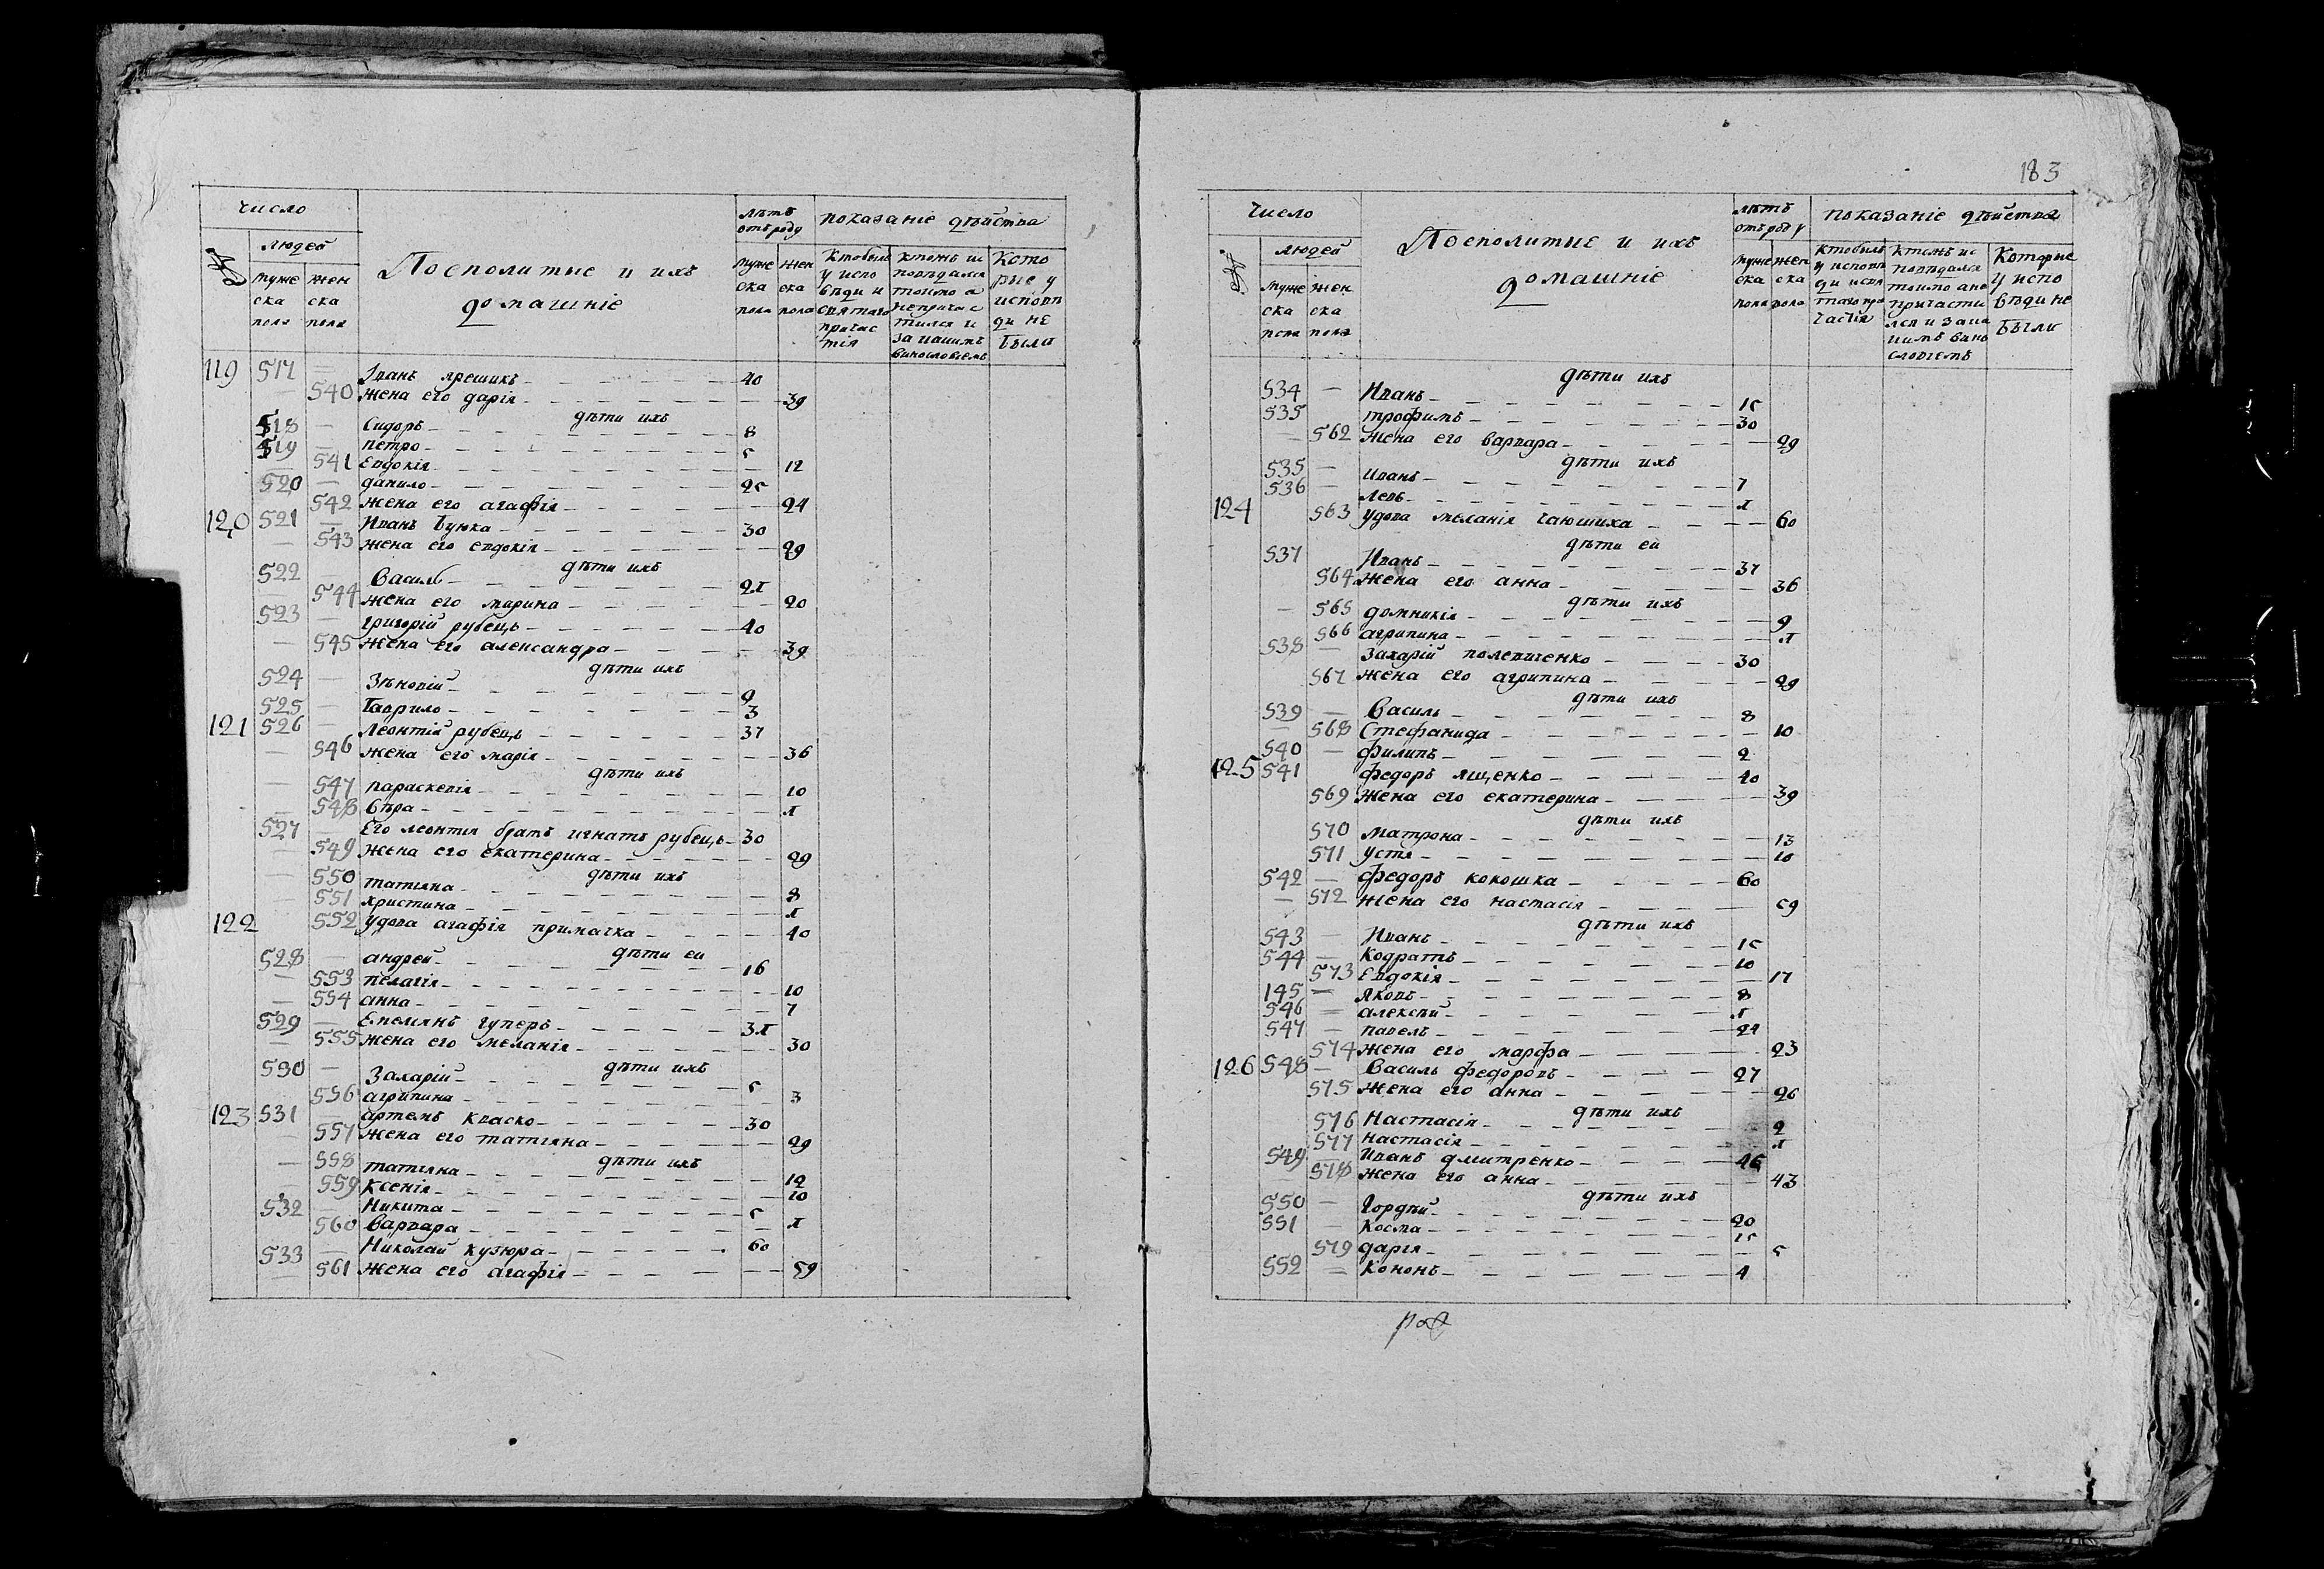 число
людей
№
муже ска пола
жен ска пола
Посполитые и ихъ
домашніе
лѣтъ отъ роду
муже ска пола
жен ска пола
показаніе дѣйства
Кто былъ у испо вѣди и святаго причас тія
кто жъ ис повѣдался токмо а непричас тился и за каимъ винословіемъ
Кото рые у исповѣ ди не были
119 517 — Іванъ ярешихъ 40
— 540 жена его дарія 39
дѣти ихъ
518 — Сидоръ 8
519 — петро 5
— 541 Евдокія 12
520 — данило 25
542 жена его агафія 24
120 521 — Иванъ бунка 30
— 543 жена его евдокія 29
дѣти ихъ
522 — Василь 21
— 544 жена его марина 20
523 — григорій рубець 40
— 545 жена его александра 39
дѣти ихъ
524 — Зѣновій 9
525 — Гаврило 3
121 526 — Леонтій рубець 37
— 546 жена его марія 36
дѣти ихъ
— 547 параскевія 10
— 548 вѣра 1
527 — Его леонтія братъ игнатъ рубець 30
549 жена его екатерина 29
дѣти ихъ
— 550 татіяна 8
— 551 христина 1
122 552 удова агафія примачка 40
дѣти еи
528 — андрей 16
— 553 пелагія 10
— 554 анна 7
529 — Емелянъ гуперъ 31
— 555 жена его меланія 30
дѣти ихъ
530 — Захарій 5
556 агрипина 3
123 531 — артемъ кваско 30
— 557 жена его татіяна 29
дѣти ихъ
— 558 татіяна 12
— 559 ксенія 10
532 — Никита 5
560 варвара 1
533 — Николай кузюра 60
— 561 жена его агафія 59
183
Число
людей
№
муже ска пола
жен ска пола
Посполитые и ихъ
домашніе
лѣтъ отъ роду
муже ска пола
жен ска пола
показаніе дѣйства
Кто былъ у исповѣ ди и свя таго при частія
Кто жъ ис повѣдался токмо а не причасти лся и за ка имъ вино словіемъ
Которые у испо вѣди не были
дѣти ихъ
534 — Иванъ 15
535 трофимъ 30
— 562 жена его варвара 29
дѣти ихъ
535 — иванъ 7
536 — левъ 1
124 563 удова меланія чаюшиха 60
дѣти еи
537 Иванъ 37
564 жена его анна 36
дѣти ихъ
— 565 домникія 9
566 агрипина 1
538 — Захарій полевиченко 30
567 жена его агрипина 29
дѣти ихъ
539 — Василь 8
— 568 Стефанида 10
540 — филипъ 2
125 541 федоръ ященко 40
569 жена его екатерина 39
дѣти ихъ
570 матрона 13
571 устя 10
542 — федоръ кокошка 60
— 572 жена его настасія 59
дѣти ихъ
543 — Иванъ 15
544 — Кодратъ 10
573 Евдокія 17
145 — яковъ 8
546 — алексѣй 1
547 — павелъ 24
574 жена его марфа 23
126 548 — Василь федоровъ 27
575 жена его анна 26
дѣти ихъ
576 Настасія 2
577 настасія 1
549 — Иванъ дмитренко 45
578 жена его анна 43
дѣти ихъ
550 — Гордѣй 20
551 — Косма 15
579 дарія 5
552 — Кононъ 4